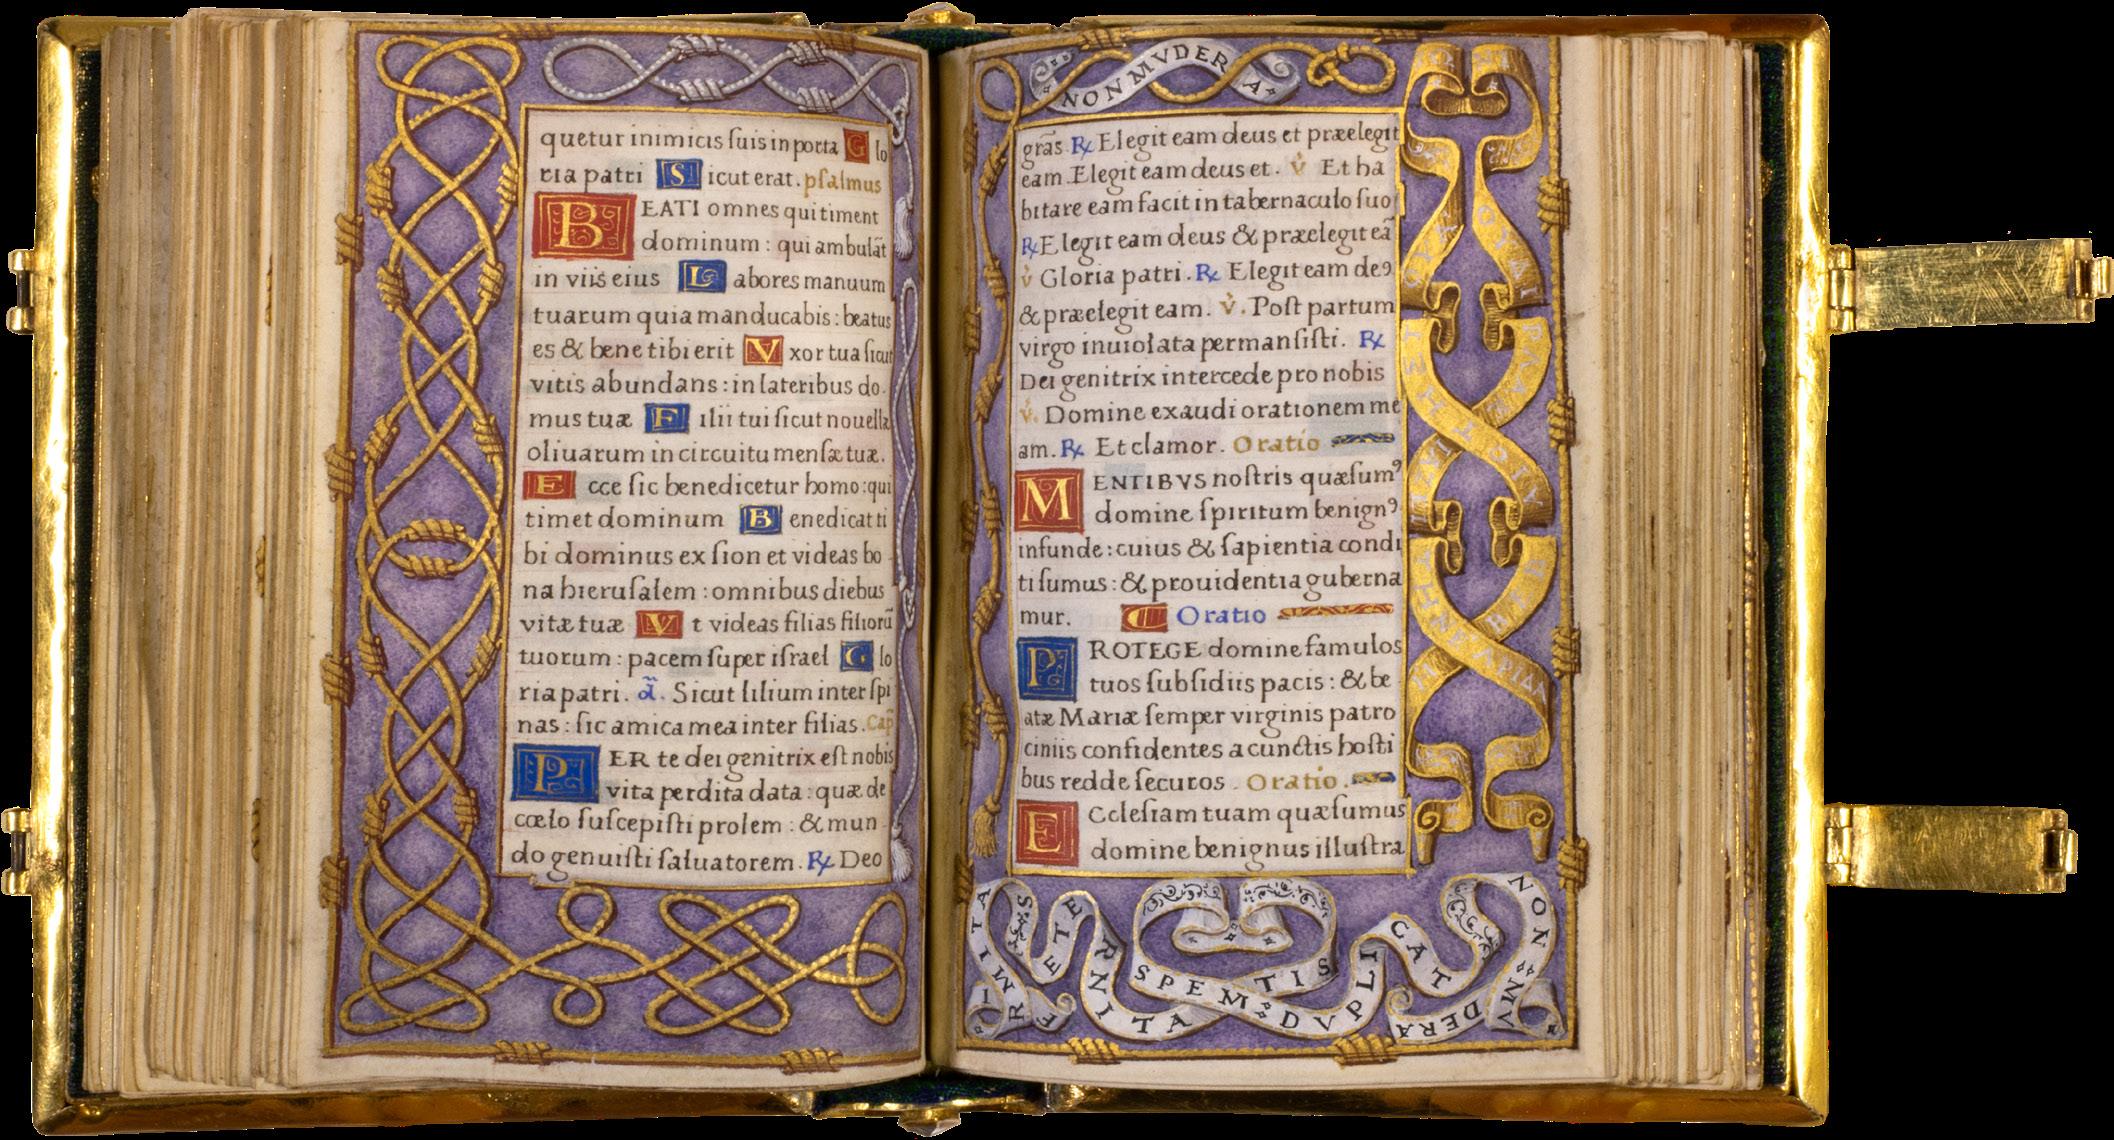 quetur inimicis ſuis in porta G lo
ria patri S icut erat. pſalmus
BEATI omnes qui timent
dominum : qui ambulāt
in viis eius L abores manuum
tuarum quia manducabis : beatus
es & bene tibi erit V xor tua ſicut
vitis abundans : in lateribus do
mus tuæ F ilii tui ſicut nouellæ
oliuarum in circuitu menſæ tuæ.
E cce ſic benedicetur homo : qui
timet dominum B enedicat ti
bi dominus ex ſion et videas bo
na hieruſalem : omnibus diebus
vitæ tuæ V t videas filias filiorū
tuorum : pacem ſuper iſrael G lo
ria patri. a͂. Sicut lilium inter ſpi
nas : ſic amica mea inter filias. Cap̄
PER te dei genitrix eſt nobis
vita perdita data : quæ de
cœlo ſuſcepiſti prolem : & mun
do genuiſti ſaluatorem. ℞ Deo
NON MVDERA
grās ℞ Elegit eam deus et præelegit
eam Elegit eam deus et. v̇ Et ha
bitare eam facit in tabernaculo ſuo
℞ Elegit eam deus & præelegit eā
v̇ Gloria patri. ℞ Elegit eam deꝰ
& præelegit eam. v̇. Poſt partum
virgo inuiolata permanſiſti. ℞
Dei genitrix intercede pro nobis
v̇. Domine exaudi orationem me
am. ℞ Et clamor. Oratio
MENTIBVS noſtris quæſumꝰ
domine ſpiritum benignꝰ
infunde : cuius & ſapientia condi
ti ſumus : & prouidentia guberna
mur. Oratio
PROTEGE domine famulos
tuos ſubſidiis pacis : & be
atæ Mariæ ſemper virginis patro
ciniis confidentes a cunctis hoſti
bus redde ſecuros. Oratio.
Eccleſiam tuam quæſumus
domine benignus illuſtra
FIRMITAS ETERNITATIS SPEM DVPLICAT NON MVDERA